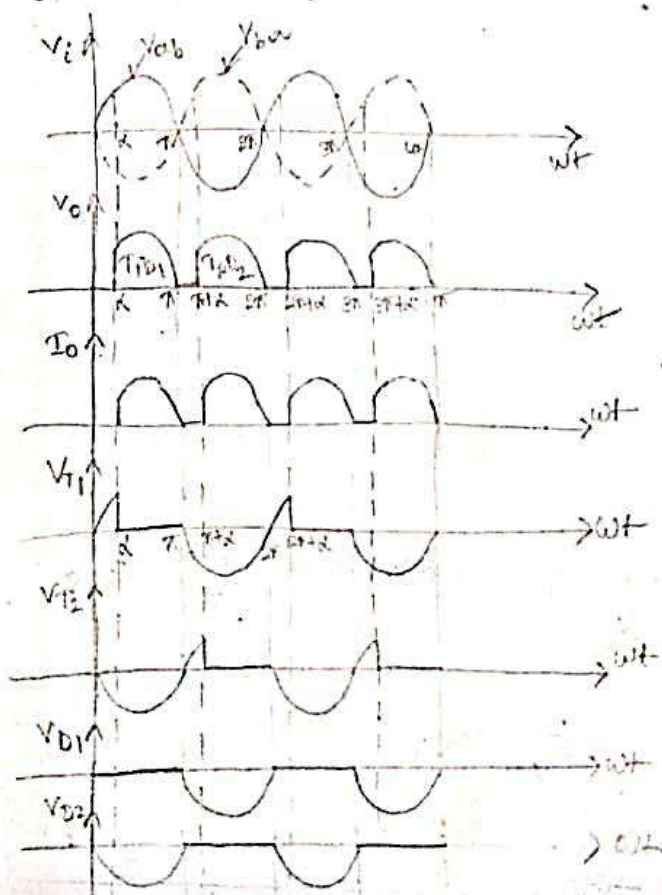 Vi Vab Vba
α π 2π 3π
wt
V0
T1D1 T2D2
α π π+α 2π 2π+α 3π 3π+α
wt
I0
wt
VT1
α π π+α 2π 2π+α
wt
VT2
wt
VD1
wt
VD2